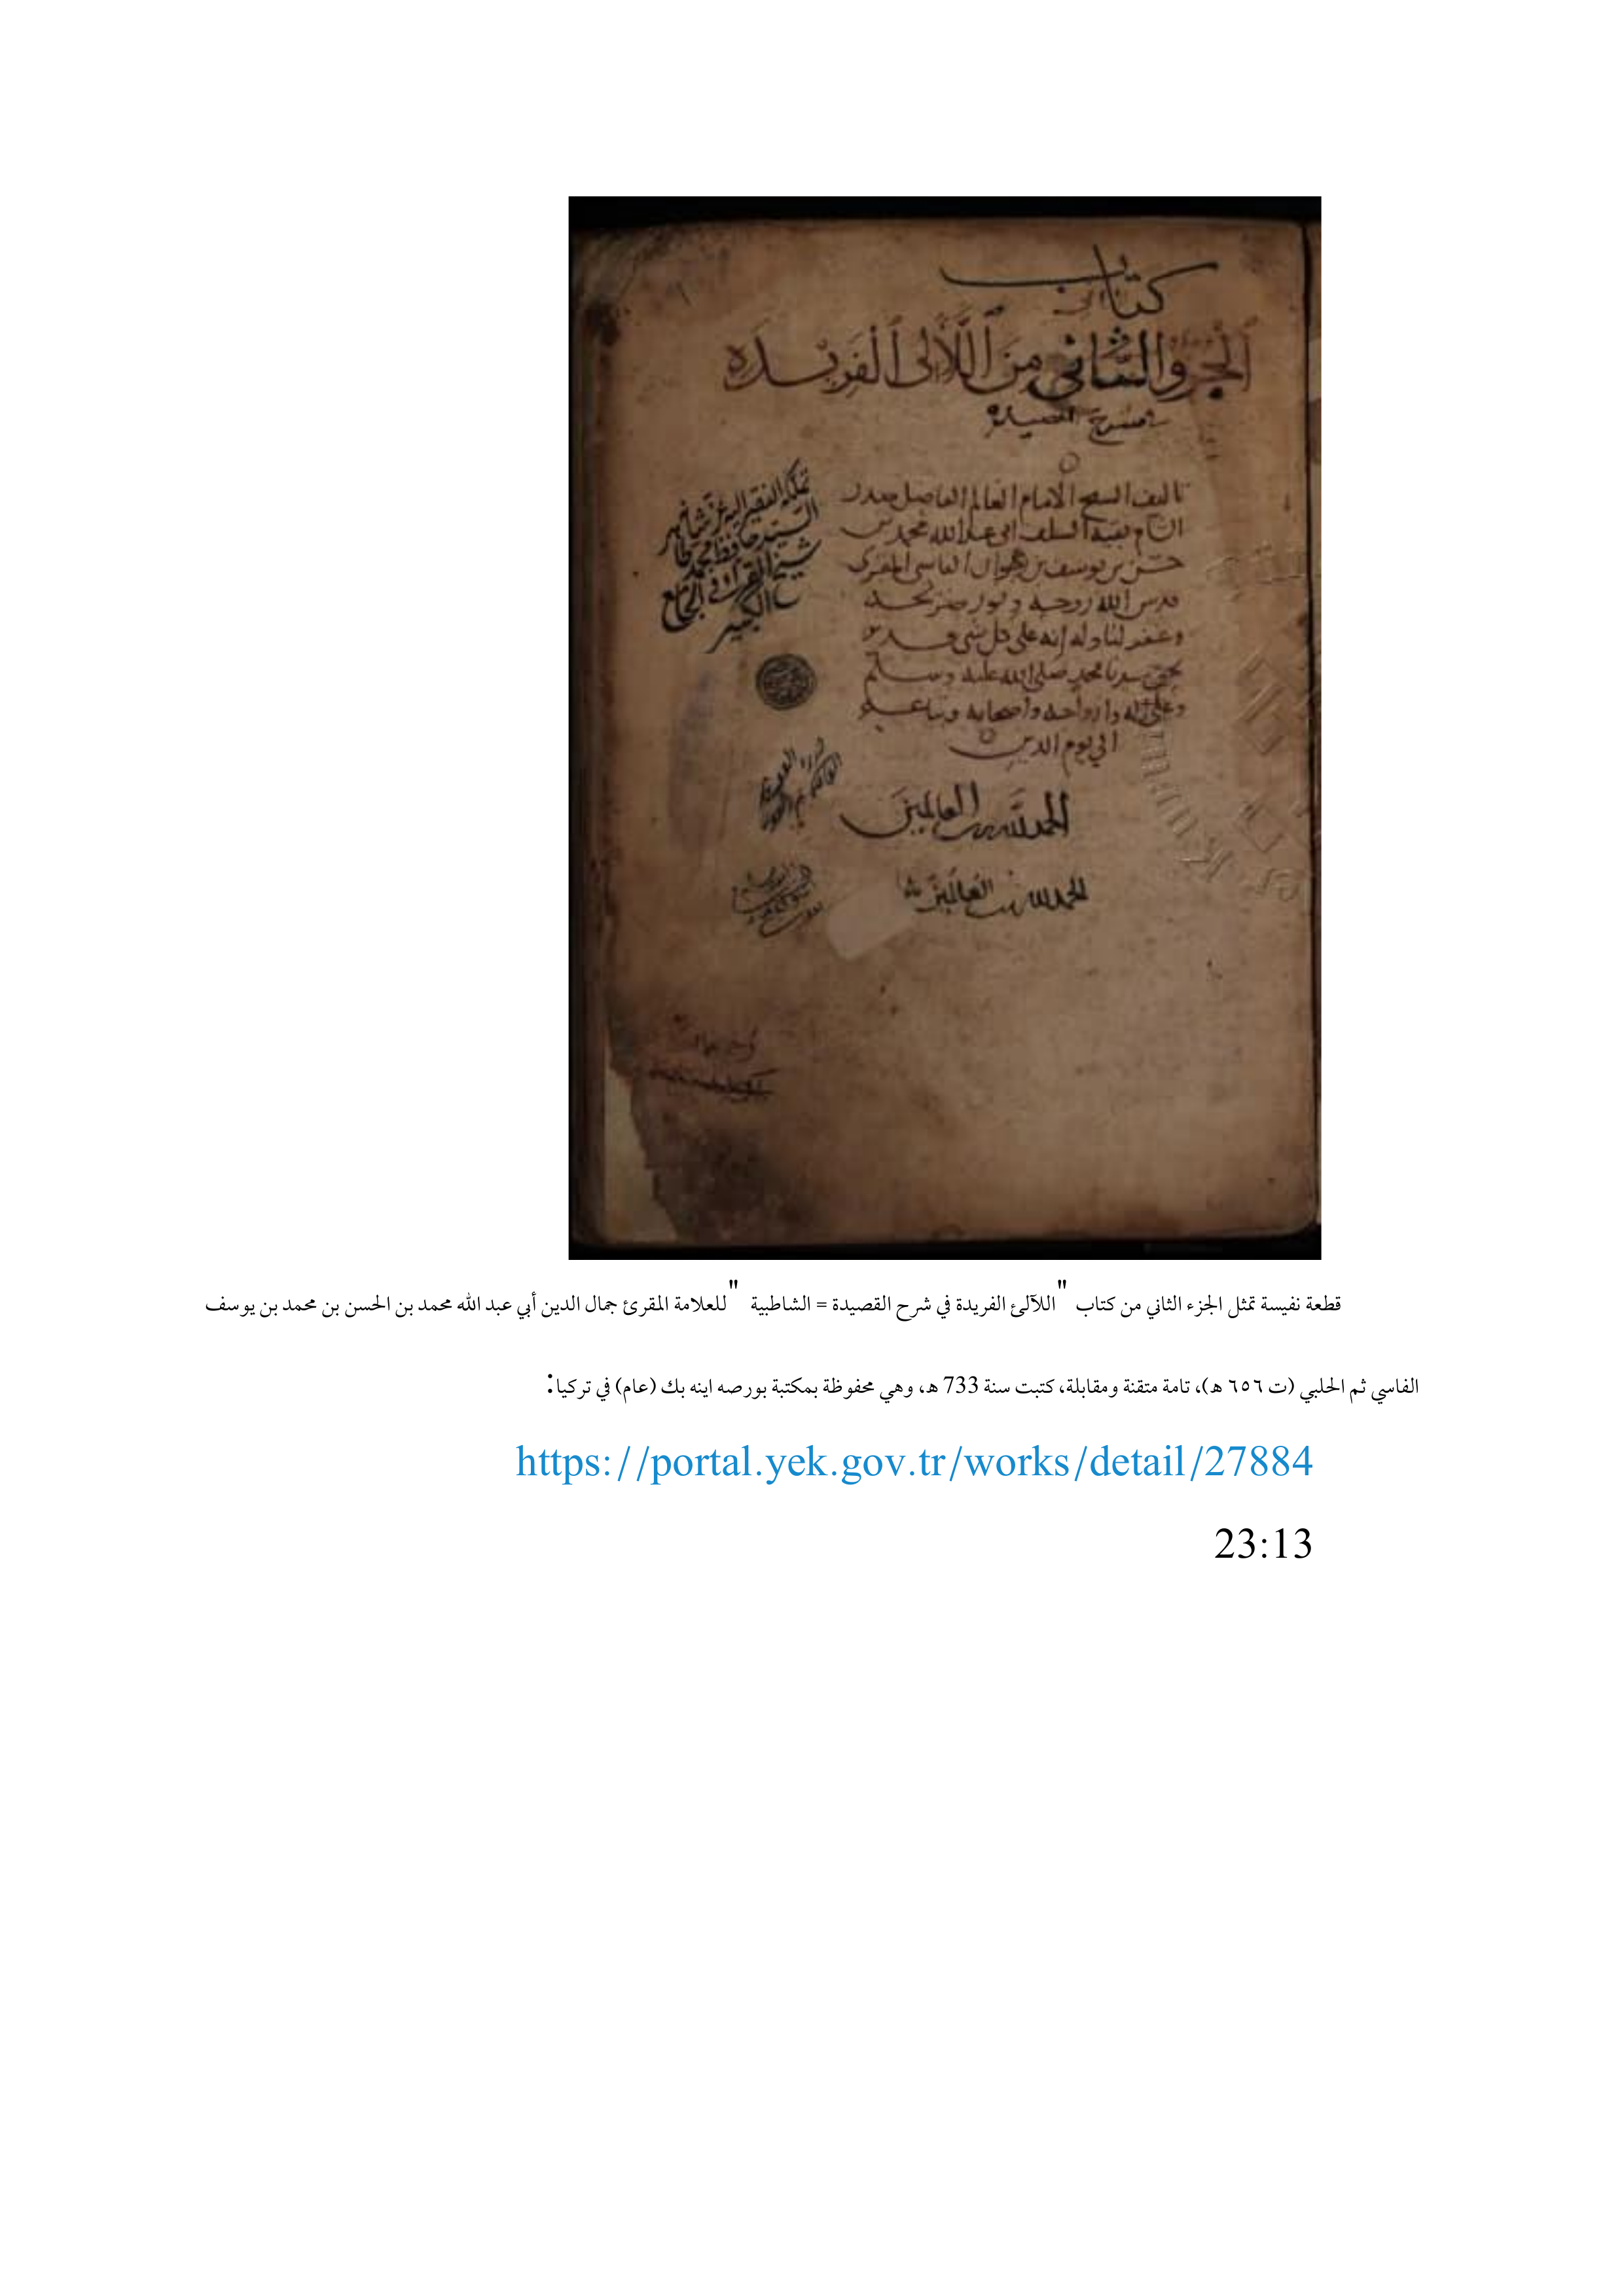 كتاب
الجزو الثاني من اللآلى الفريده
شرح القصيده
تاليف الشيخ الامام العالم الفاضل صدر
الشام بقية السلف ابى عبد الله محمد بن
حسن بن يوسف بن الفاسى المقرى
قدس الله روحه ونور ضريحه
وغفر لنا وله إنه على كل شى قدير
بحق سيدنا محمد صلى الله عليه وسلم
وعلى اله وازواجه واصحابه
الي يوم الدين
تملكه الفقير اليه عز شانه
السيد حافظ محمد
شيخ القراء في الجامع
الكبير
الحمد لله رب العالمين
الحمد لله رب العالمين
قطعة نفيسة تمثل الجزء الثاني من كتاب "اللآلئ الفريدة في شرح القصيدة = الشاطبية " للعلامة المقرئ جمال الدين أبي عبد الله محمد بن الحسن بن محمد بن يوسف
الفاسي ثم الحلبي (ت ٦٥٦ هـ)، تامة متقنة ومقابلة، كتبت سنة 733 هـ، وهي محفوظة بمكتبة بورصه اينه بك (عام) في تركيا:
https://portal.yek.gov.tr/works/detail/27884
23:13